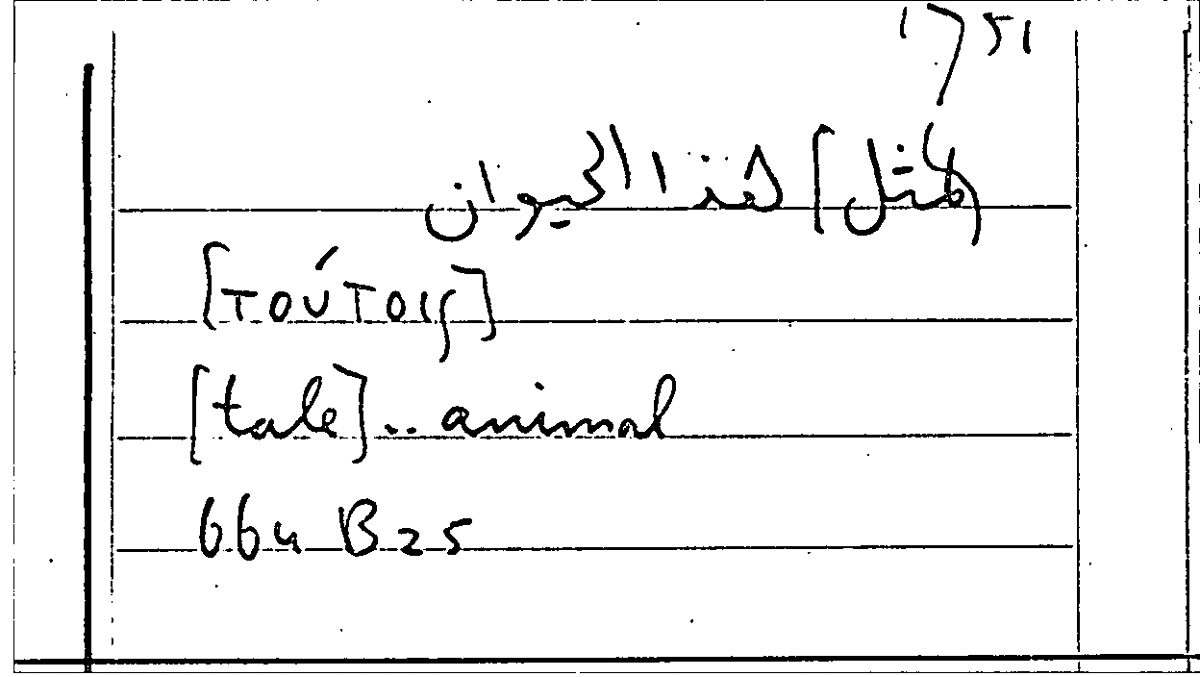 1751
[مثل] هذا الحيوان
[τούτοις]
[tale].. animal
664 B25